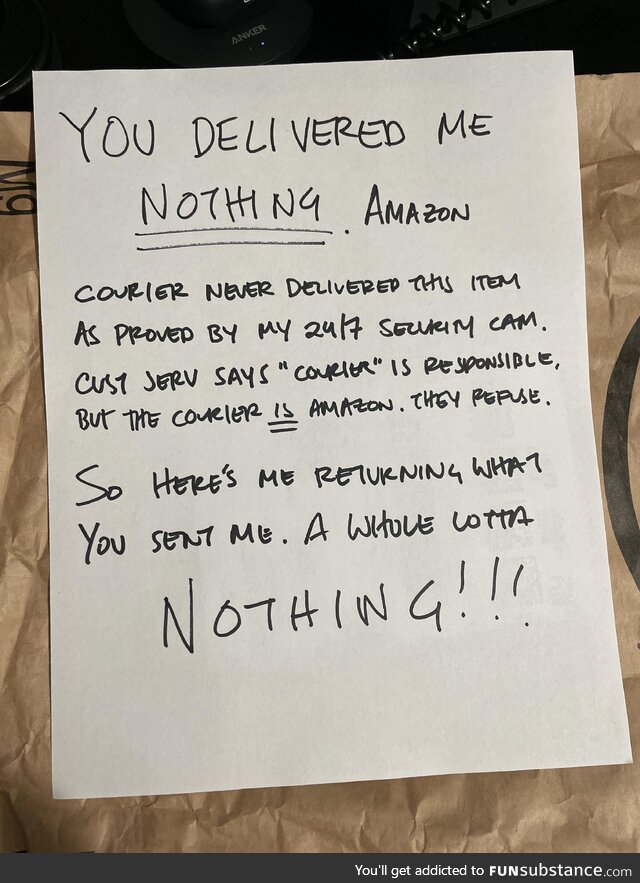 ANKER
YOU DELIVERED ME
NOTHING. AMAZON
COURIER NEVER DELIVERED THIS ITEM
AS PROVED BY MY 24/7 SECURITY CAM.
CUST SERV SAYS "COURIER" IS RESPONSIBLE,
BUT THE COURIER IS AMAZON. THEY REFUSE.
SO HERE'S ME RETURNING WHAT
YOU SENT ME. A WHOLE LOTTA
NOTHING!!!
You'll get addicted to FUNsubstance.com